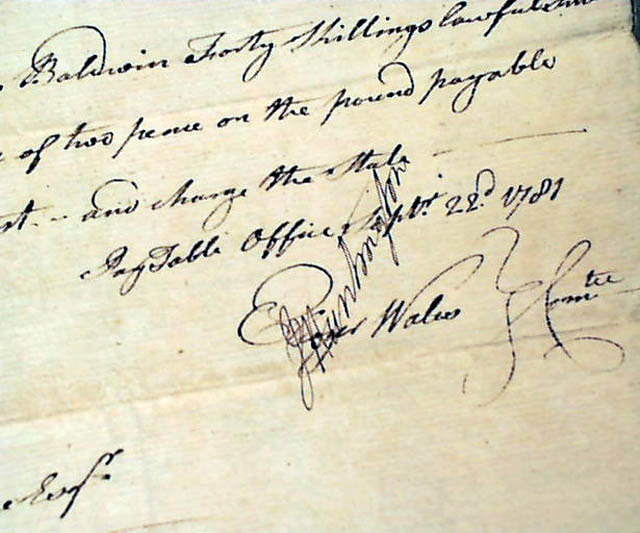 Baldwin Forty Shillings lawful
of two pence on the pound payable
and charge the State
Pay Table Office Sept.r 22.d 1781
Eleazr Wales Comtee
Huntington
Esqr